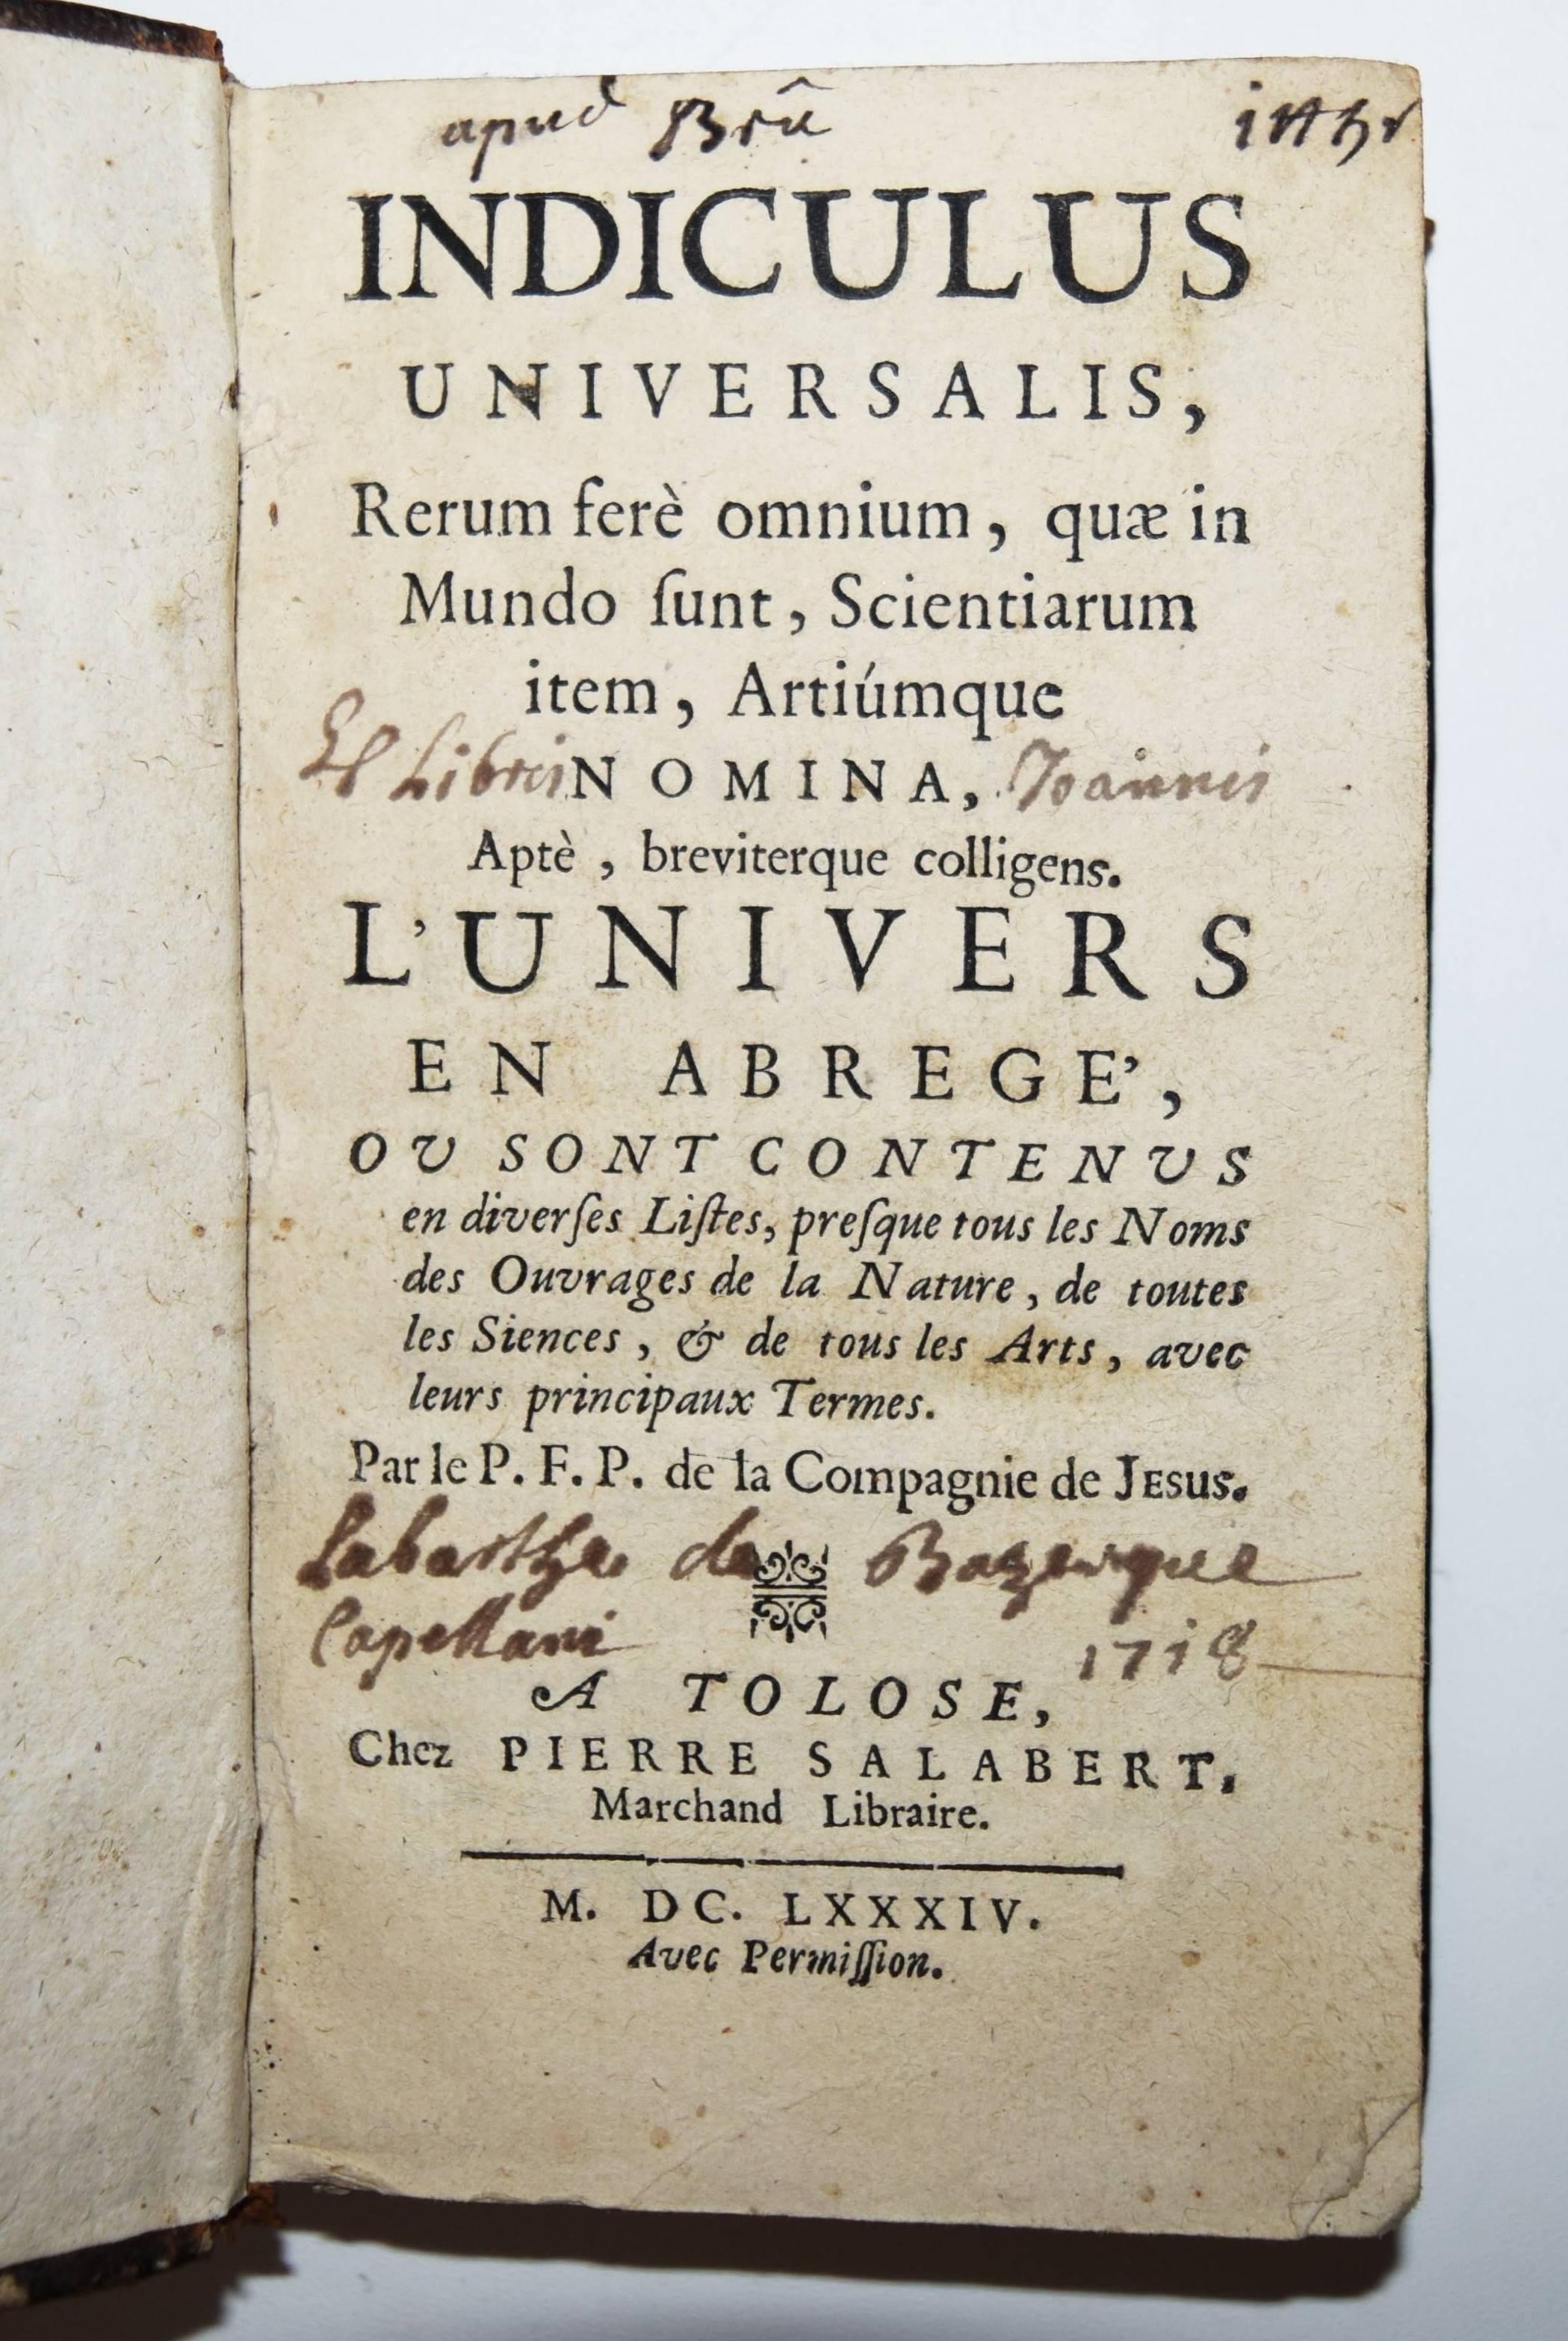 apud Brũ
INDICULUS
UNIVERSALIS,
Rerum ferè omnium, quæ in
Mundo ſunt, Scientiarum
item, Artiúmque
Ex Libris NOMINA, Joannis
Aptè, breviterque colligens.
L'UNIVERS
EN ABREGE',
OU SONT CONTENUS
en diverſes Liſtes, preſque tous les Noms
des Ouvrages de la Nature, de toutes
les Siences, & de tous les Arts, avec
leurs principaux Termes.
Par le P. F. P. de la Compagnie de JESUS.
Labarthe de Bazerque
Capellani 1718
A TOLOSE,
Chez PIERRE SALABERT,
Marchand Libraire.
M. DC. LXXXIV.
Avec Permiſſion.